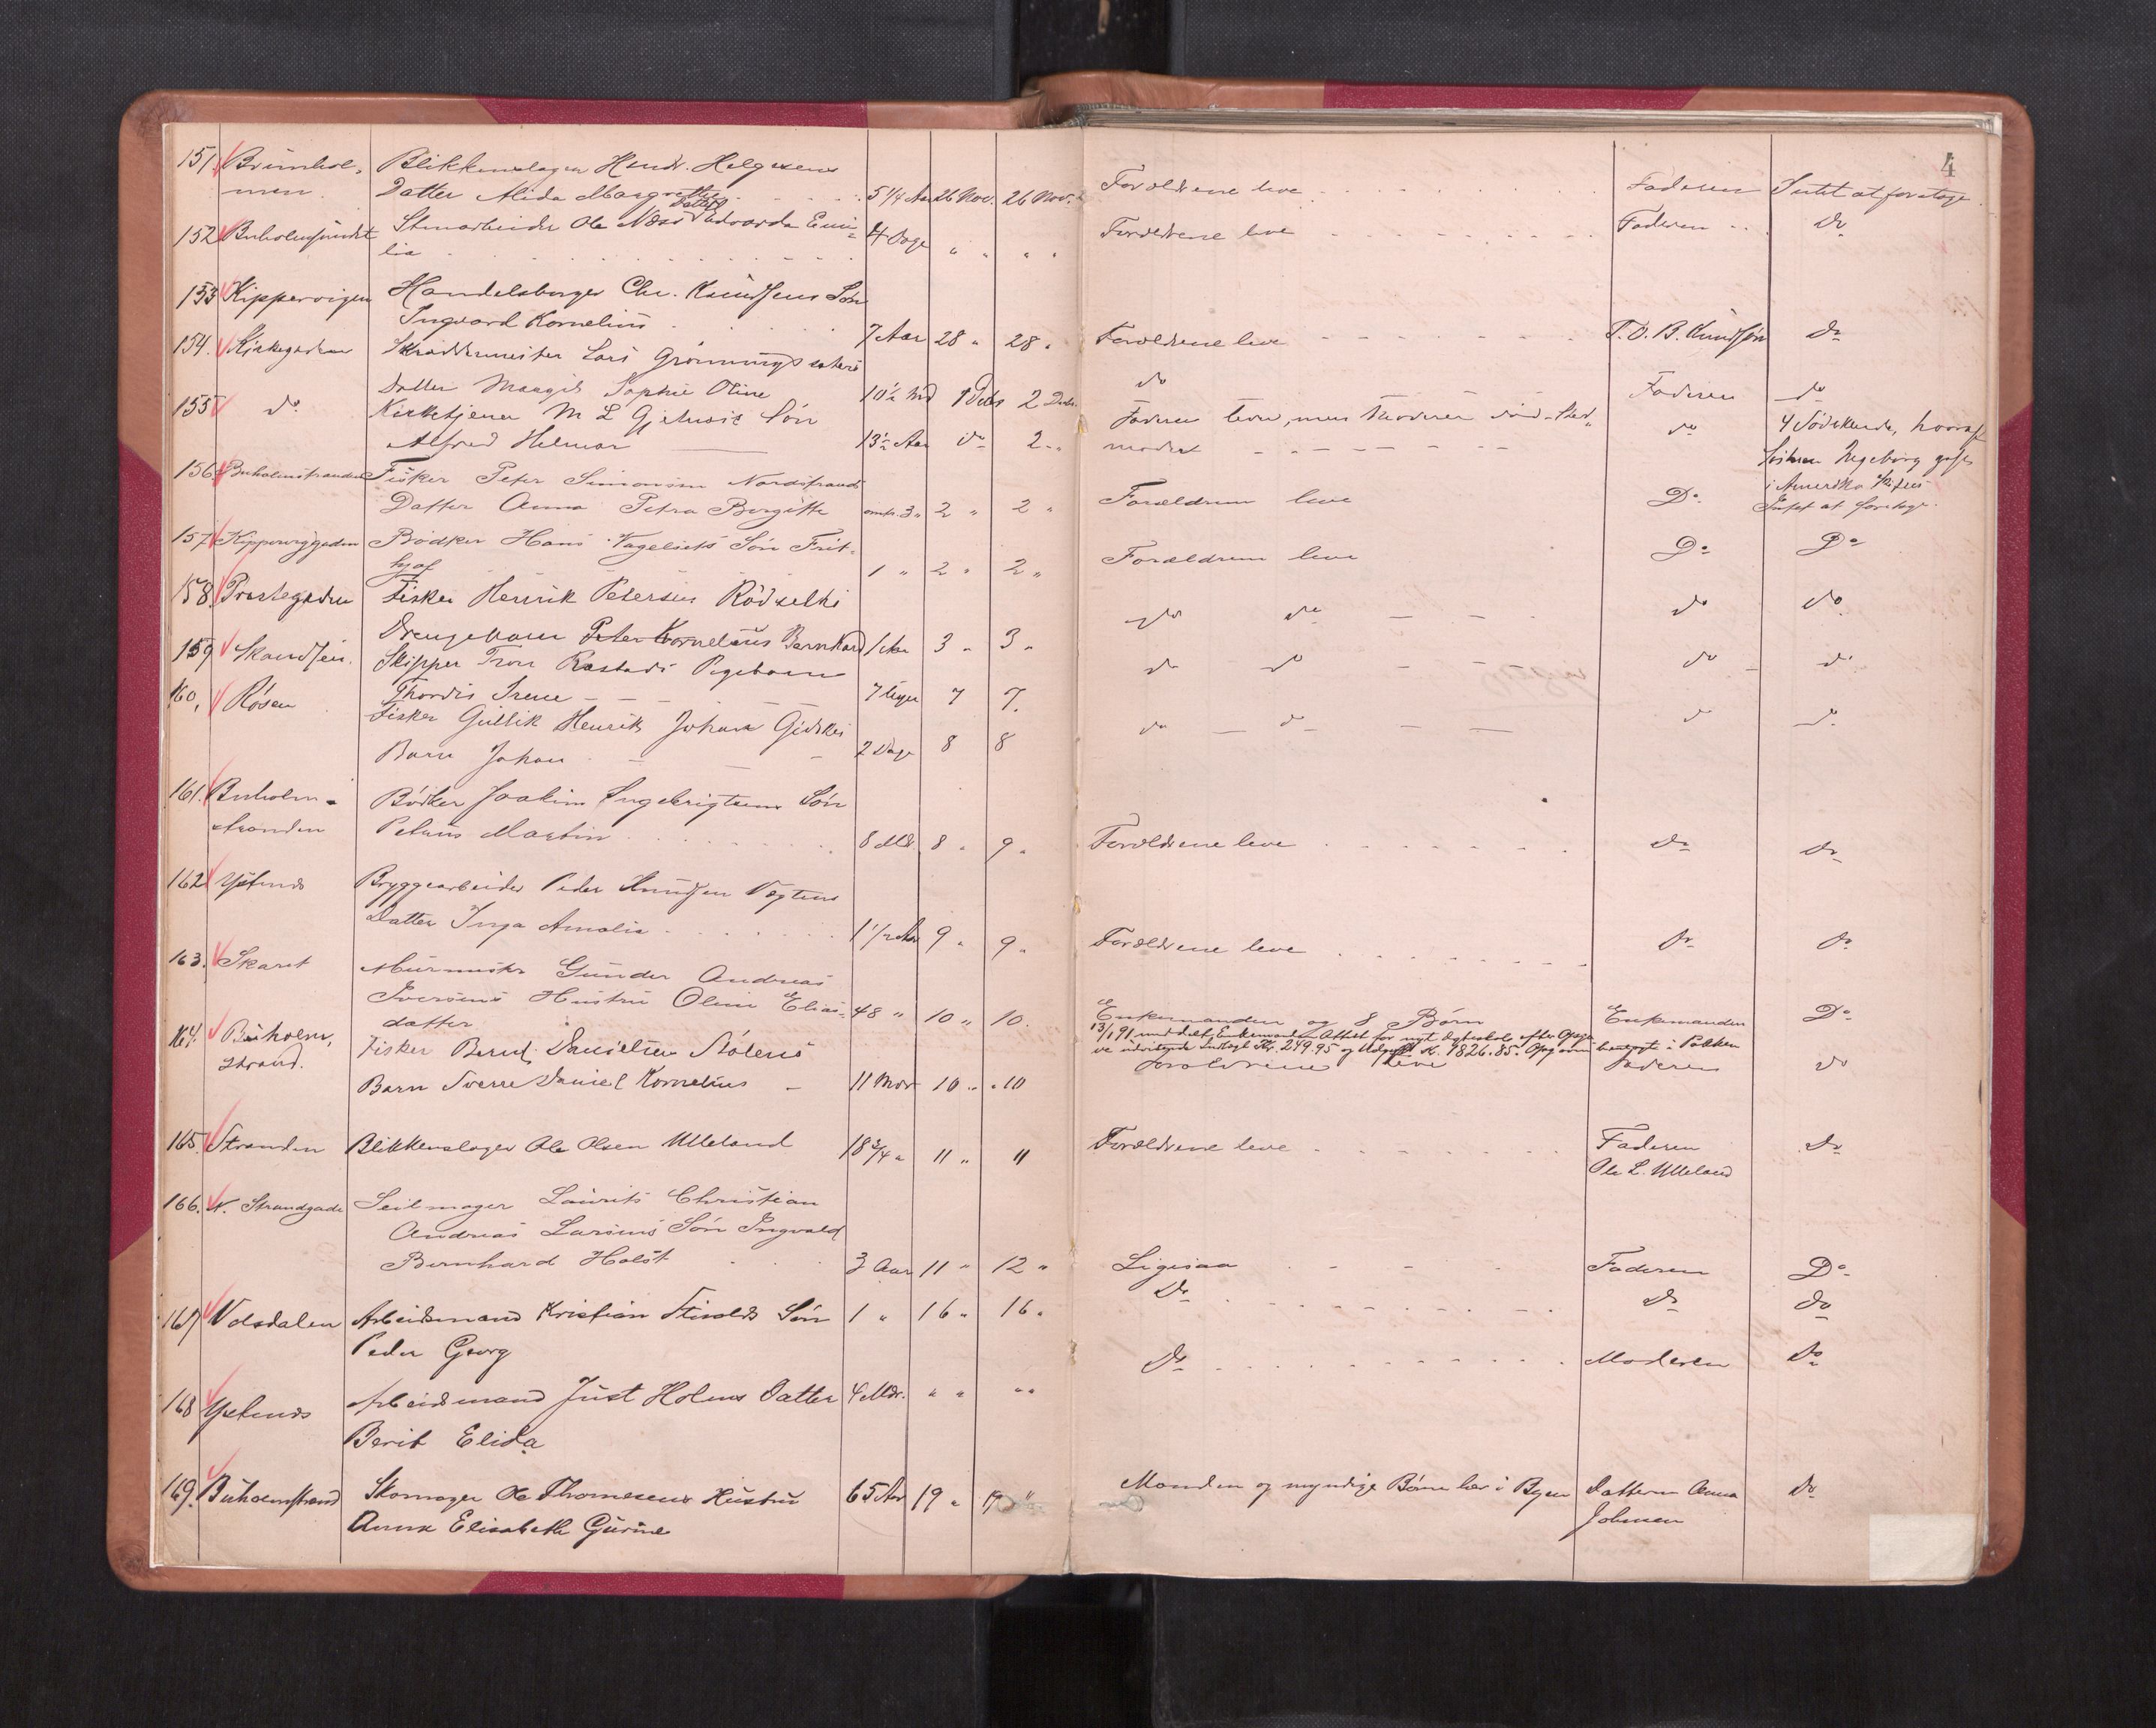 4
151. Brunhol- Blikkenslager Hendr. Helgesens
men. Datter Alida Margrethe 5 1/4 Aar 26 Nov. 26 Nov. Forældrene leve Faderen Intet at foretage.
152 Buholmsundet Ole Næss Datter Edvarda Emi- 4 Dage " " " " Forældrene leve Faderen Do
lia
153 Kippervigen Handelsborger Chr. Knudsens Søn
Ingvard Kornelius 7 Aar 28 " 28 " Forældrene leve T. O. B. Knudsøn Do
154. Kirkegaden Skræddermester Lars Grønnings
Datter Margit Sophie Oline 10 1/2 Md 1 Decbr 2 Decbr. do Faderen do
155 do Kirketjener M L Søn
Alfred Helmar 13 1/2 Aar do 2 " Faderen lever, men Moderen død - Sted-
moder do 4 Sødskende, hvoraf
Søsteren Ingeborg gift
i Amerika
156. Buholmstranden Fisker Peter Simonsen Nordstrands
Datter Anna Petra Bergitte omtr. 3 " 2 " 2 " Forældrene leve Do Intet at foretage.
157 Kipperviggaden Bødker Hans Vagelsets Søn Frit-
hjof 1 " 2 " 2 " Forældrene leve Do Do
158. Præstegaden Fisker Henrik Petersen Rødsethi
Drengebarn Peter Kornelius Bernhard 1 Aar 3 " 3 " do do do do
159 Skandsen. Skipper Tron Rastads Pigebarn
Thordis Irene 7 Uger 7 7. do do do do
160, Røsen Fisker Gullik Henrik Johan Gidskes
Barn Johan 2 Dage 8 8 do do do do
161. Buholm- Bødker Joakim Ingebrigtsens Søn
stranden Petrus Martin 8 Md. 8 " 9 " Forældrene leve Do Do
162 Ystenes Bryggearbeider Peder Knudsen Vegtens
Datter Inga Amalia 1 1/2 Aar 9 " 9 " Forældrene leve Do Do
163. Skaret Murmester Gunder Andreas
Iversens Hustru Oline Elias- 48 " 10 " 10. Enkemanden og 8 Børn Enkemanden Do
datter
13/1 91 meddelt Enkemanden Attest for
Kr. 249.95 og Kr. 1826.85. i Pakken
164. Buholm, Fisker Bernt Danielsen Støleris
strand. Barn Sverre Daniel Kornelius 11 Mdr 10 " 10 Forældrene leve Faderen do
165. Stranden Blikkenslager Ole Olsen Ulleland 18 3/4 " 11 " 11 Forældrene leve Faderen Do
Ole L. Ulleland
166. N. Strandgade Seilmager Laurits Christian
Andreas Larsens Søn Ingvald
Bernhard Holst 3 Aar 11 " 12 " Ligesaa Faderen Do
167 Volsdalen Arbeidsmand Kristian Søn 1 " 16 " 16 " Do Do do
Peder Georg
168 Ystenes Arbeidsmand Just Holms Datter 4 Mdr. " " " " Do Moderen Do
Berit Elida
169. Buholmstrand Skomager Ole Thomesens Hustru 65 Aar 19 " 19 " Manden og myndige Børn her i Byen Datteren Anna Do
Anna Elisabeth Gurine Johnsen